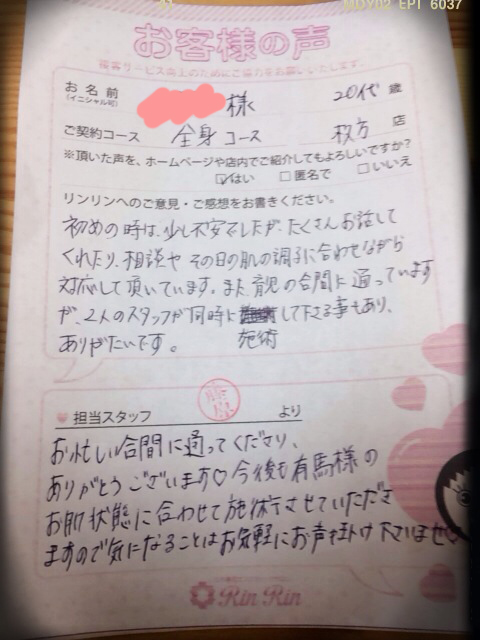 MDY02 EPT 6037
お客様の声
接客サービス向上のためにご協力をお願いいたします。
お名前
(イニシャル可)
様 20代 歳
ご契約コース 全身コース 枚方 店
※頂いた声を、ホームページや店内でご紹介してもよろしいですか?
はい 匿名で いいえ
リンリンへのご意見・ご感想をお書きください。
初めの時は、少し不安でしたが、たくさんお話して
くれたり、相談や その日の肌の調子に合わせながら
対応して頂いています。また、育児の合間に通っています
が、2人のスタッフが同時に して下さる事もあり、
施術
ありがたいです。
担当スタッフ より
お忙しい合間に通ってくださり、
ありがとうございます♡ 今後も有馬様の
お肌状態に合わせて施術させていただき
ますので気になることはお気軽にお声掛け下さいませ♡
Rin Rin